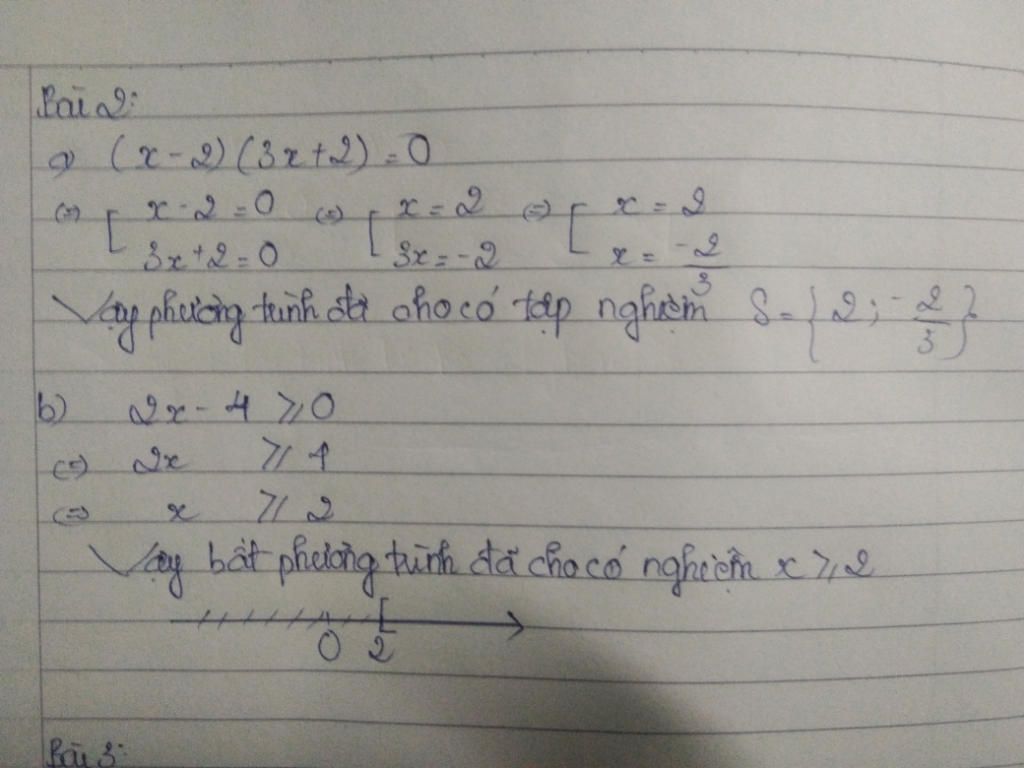 Bài 2:
a) (x - 2)(3x + 2) = 0
(=) [ x - 2 = 0 (=) [ x = 2 (=) [ x = 2
3x + 2 = 0 3x = -2 x = -2/3
Vậy phương trình đã cho có tập nghiệm S = {2; -2/3}
b) 2x - 4 ⩾ 0
(=) 2x ⩾ 4
(=) x ⩾ 2
Vậy bất phương trình đã cho có nghiệm x ⩾ 2
0 2
Bài 3: